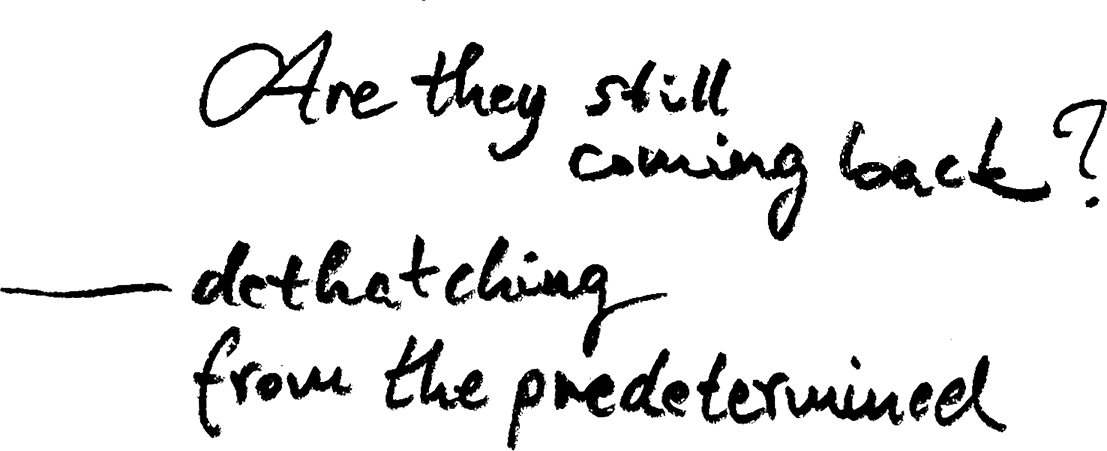 Are they still
coming back?
— dethatching
from the predetermined